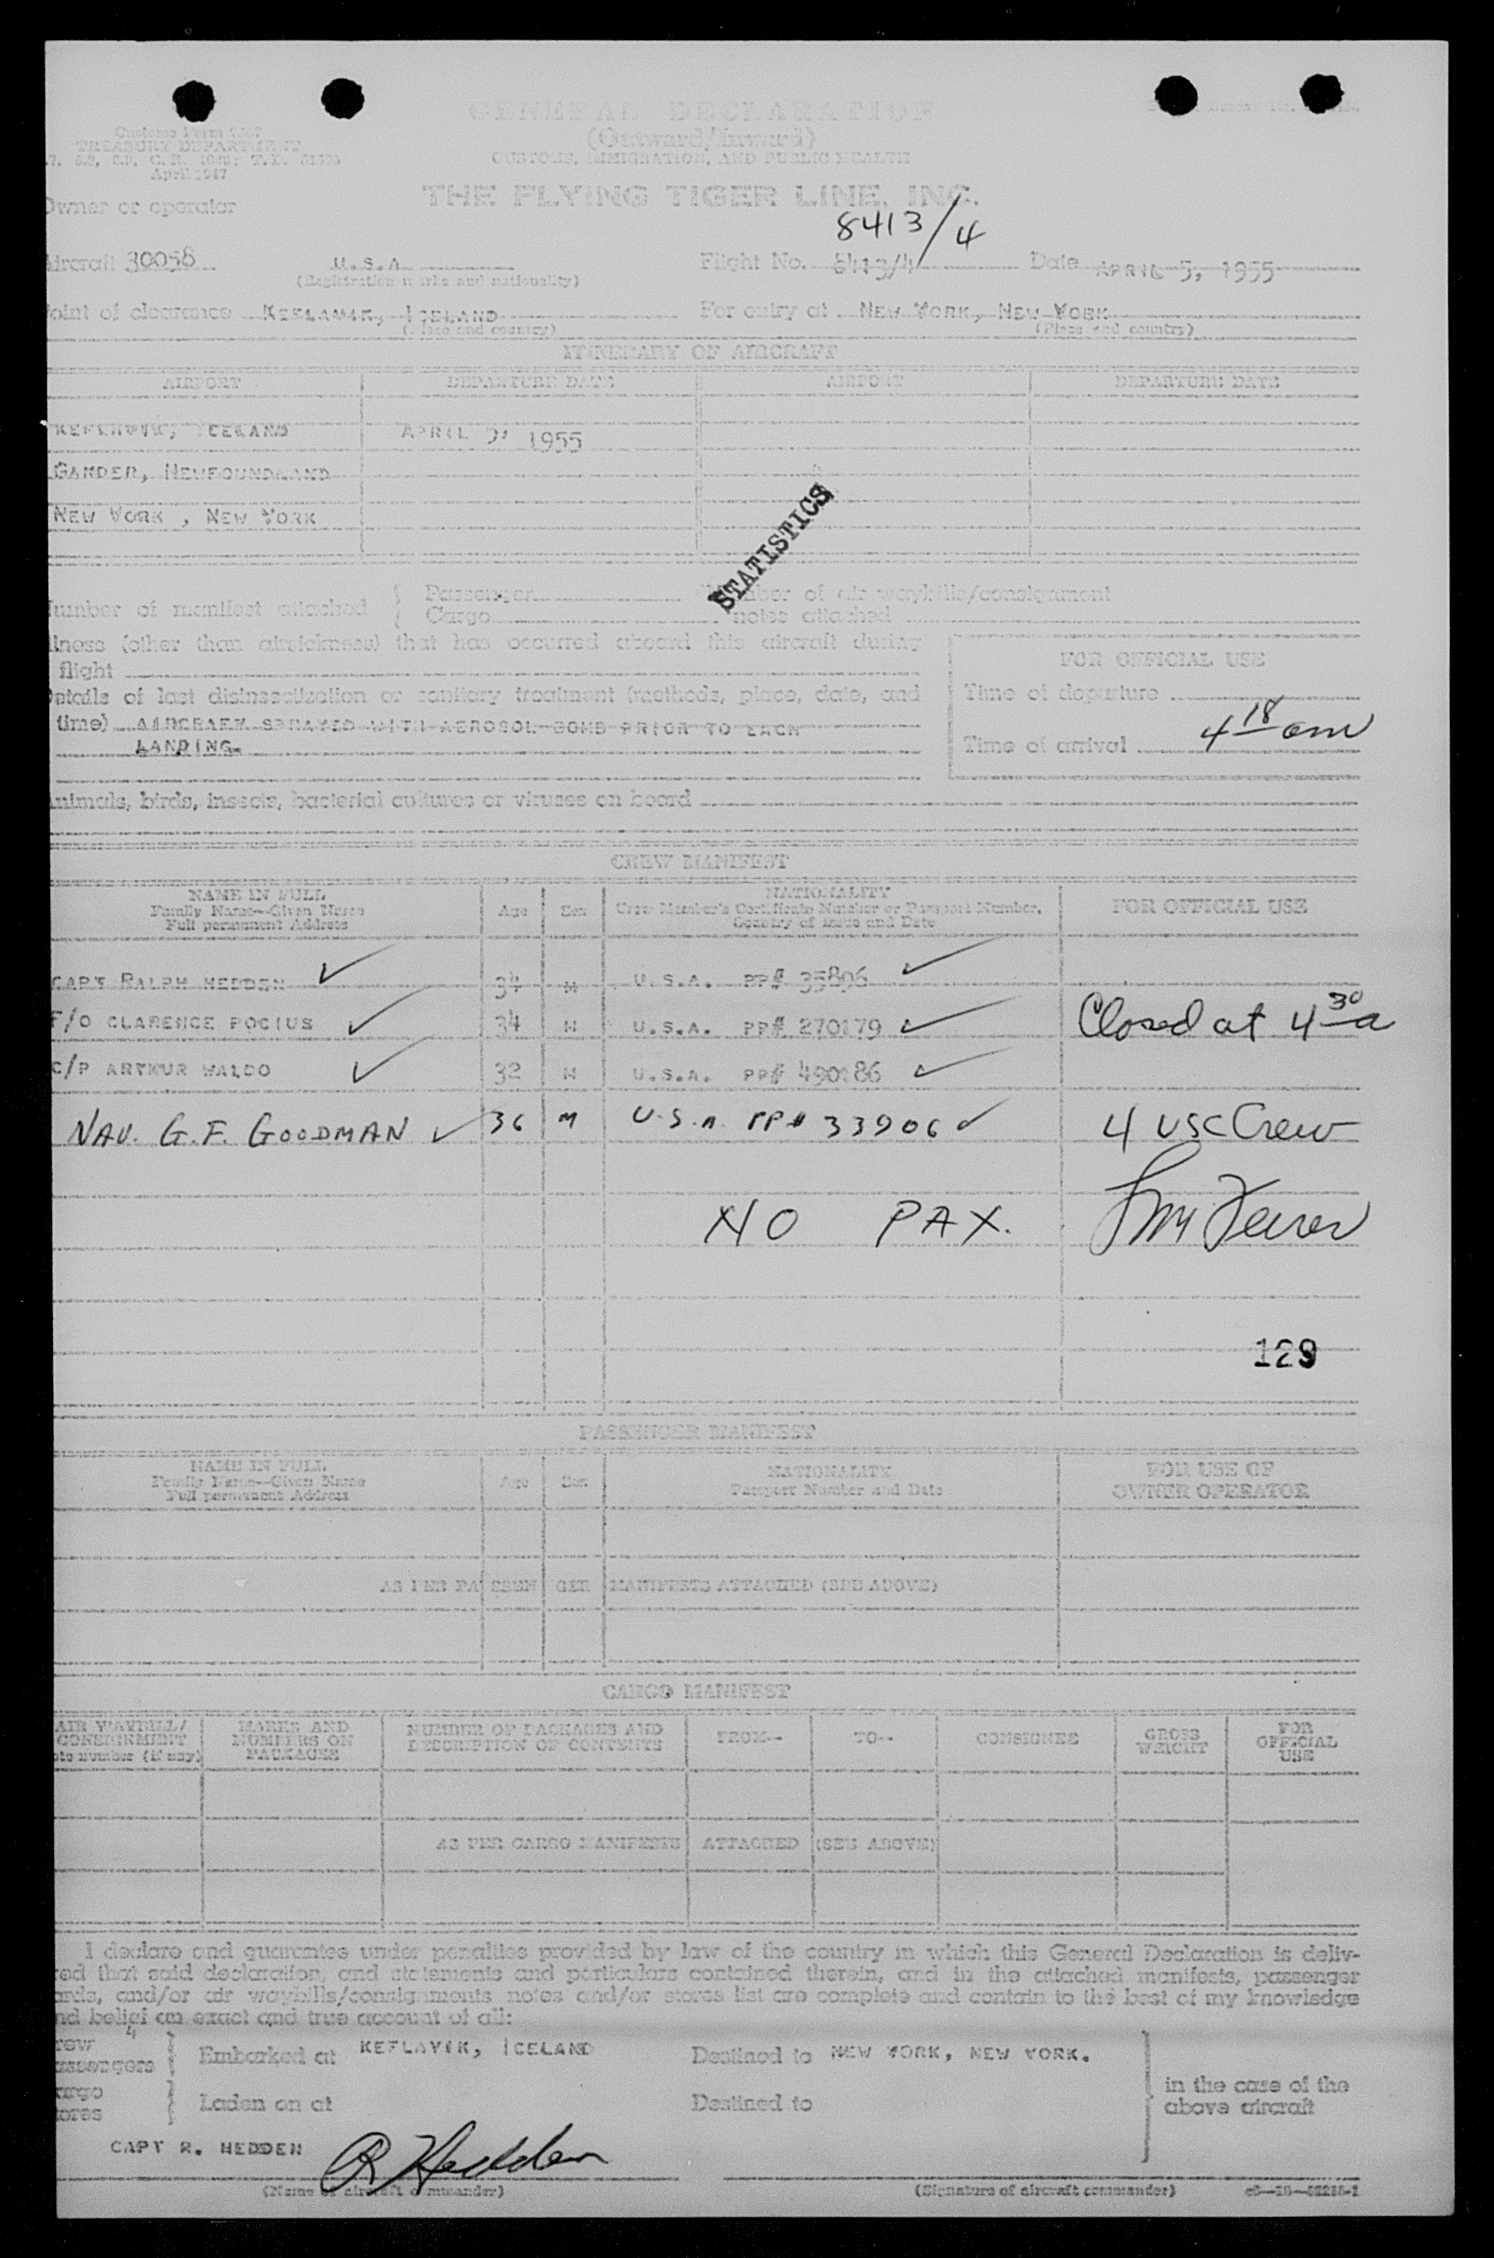 GENERAL DECLARATION
(Outward/Inward)
CUSTOMS, IMMIGRATION, AND PUBLIC HEALTH
TREASURY DEPARTMENT
April 1947
THE FLYING TIGER LINE, INC.
Owner or operator
8413/4
Aircraft 30058 U.S.A Flight No. Date APRIL 5, 1955
(Registration marks and nationality)
Point of clearance KEFLAVIK, ICELAND For entry at NEW YORK, NEW YORK
(Place and country) (Place and country)
ITINERARY OF AIRCRAFT
AIRPORT DEPARTURE DATE AIRPORT DEPARTURE DATE
KEFLAVIK, ICELAND APRIL 1955
GANDER, NEWFOUNDLAND
NEW YORK, NEW YORK
STATISTICS
Number of manifest attached { Passenger Number of air waybills/consignment
Cargo notes attached
Illness (other than airsickness) that has occurred aboard this aircraft during
flight
FOR OFFICIAL USE
Details of last disinsectization or sanitary treatment (methods, place, date, and
time) AIRCRAFT SPRAYED WITH AEROSOL BOMB PRIOR TO EACH
LANDING.
Time of departure
Time of arrival 4 18 am
Animals, birds, insects, bacterial cultures or viruses on board
CREW MANIFEST
NAME IN FULL
Family Name—Given Name
Full permanent Address
Age Sex
NATIONALITY
Crew Member's Certificate Number or Passport Number,
Country of Issue and Date
FOR OFFICIAL USE
CAPT RALPH HEDDEN ✓ 34 M U.S.A. PP# 35896 ✓
F/O CLARENCE POCIUS ✓ 34 M U.S.A. PP# 270179 ✓ Closed at 4 30 a
C/P ARTHUR WALDO ✓ 32 M U.S.A. PP# 490186 ✓
NAV. G.F. GOODMAN ✓ 36 M U.S.A. PP# 33906 ✓ 4 USC Crew
NO PAX.
129
PASSENGER MANIFEST
NAME IN FULL
Family Name—Given Name
Full permanent Address
Age Sex
NATIONALITY
Passport Number and Date
FOR USE OF
OWNER OPERATOR
AS PER PASSENGER MANIFESTS ATTACHED (SEE ABOVE)
CARGO MANIFEST
AIR WAYBILL/
CONSIGNMENT
note number (if any)
MARKS AND
NUMBERS ON
PACKAGES
NUMBER OF PACKAGES AND
DESCRIPTION OF CONTENTS
FROM— TO— CONSIGNEE
GROSS
WEIGHT
FOR
OFFICIAL
USE
AS PER CARGO MANIFESTS ATTACHED (SEE ABOVE)
I declare and guarantee under penalties provided by law of the country in which this General Declaration is deliv-
ered that said declaration, and statements and particulars contained therein, and in the attached manifests, passenger
cards, and/or air waybills/consignments notes and/or stores list are complete and contain to the best of my knowledge
and belief an exact and true account of all:
Crew 4
Passengers } Embarked at KEFLAVIK, ICELAND Destined to NEW YORK, NEW YORK.
Cargo
Stores } Laden on at Destined to
in the case of the
above aircraft
CAPT R. HEDDEN R Hedden
(Name of aircraft commander) (Signature of aircraft commander)